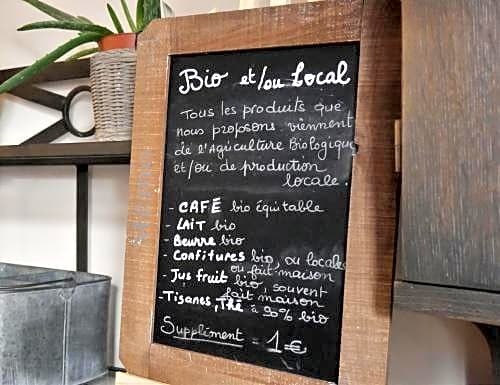 Bio et/ou Local
Tous les produits que
nous proposons viennent
de l'Agriculture Biologique
et/ou de production
locale.
- CAFÉ bio équitable
- LAIT bio
- Beurre bio
- Confitures bio, ou locale
ou fait maison
- Jus fruit bio, souvent
fait maison
- Tisanes, Thé à 90% bio
Supplément = 1€